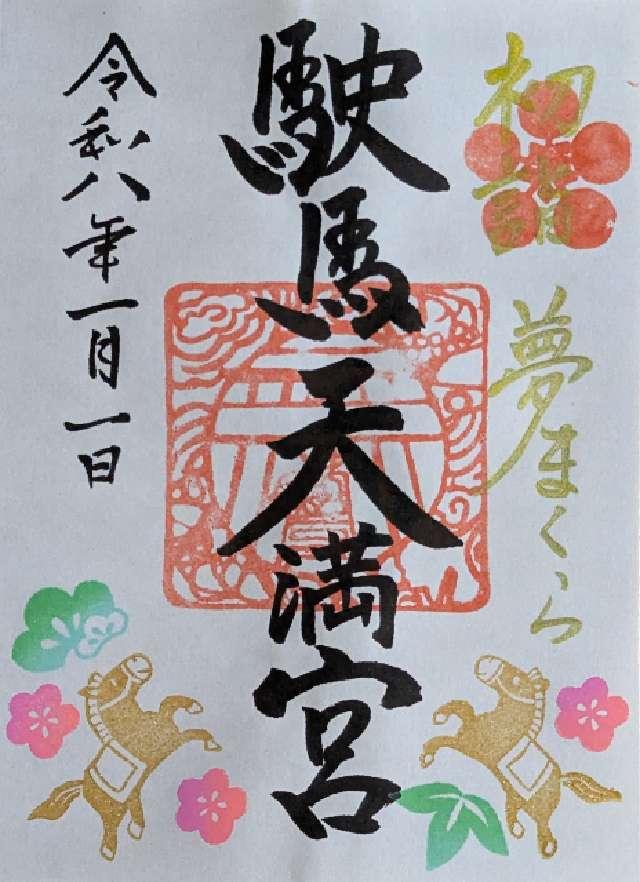 初詣
夢まくら
駛馬天満宮
令和八年一月一日